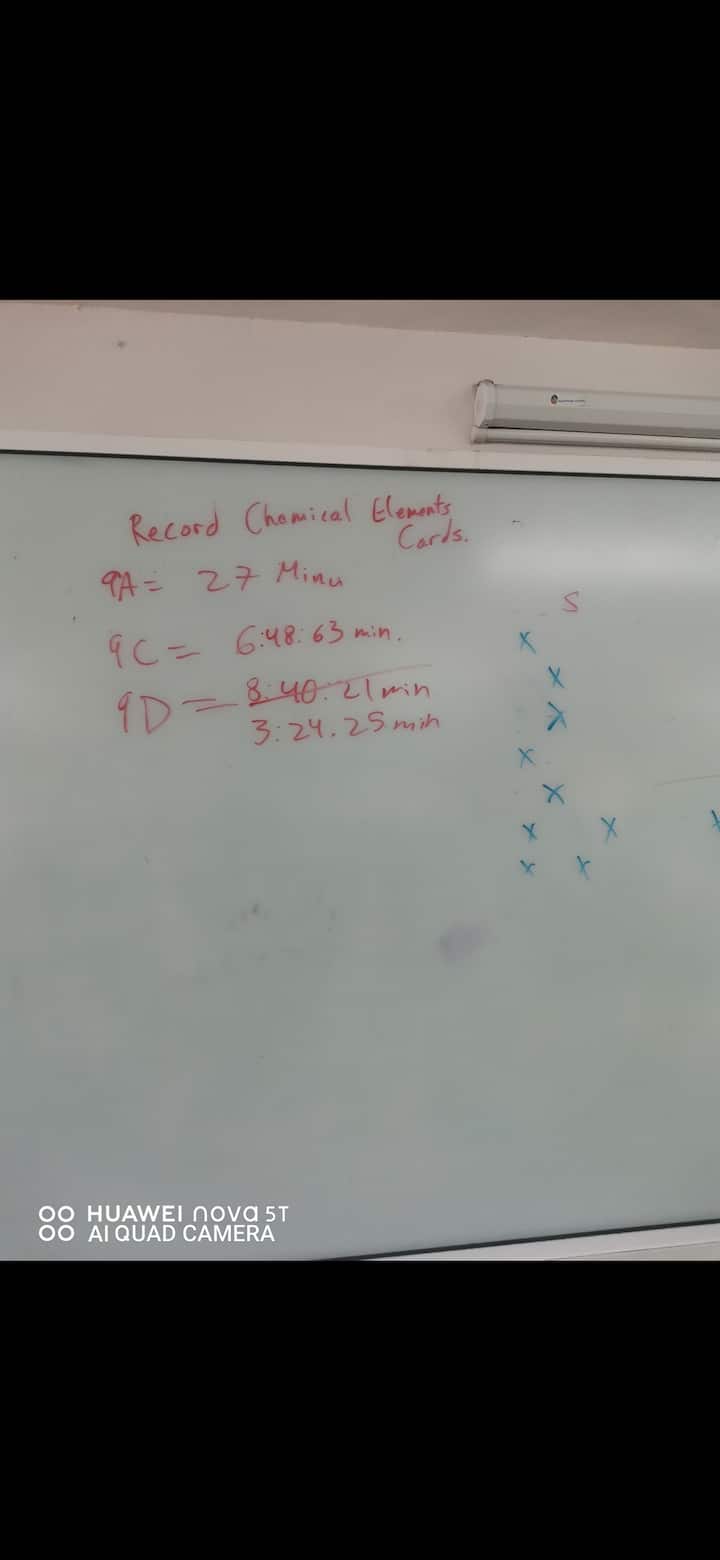 Record Chemical Elements
Cards.
9A = 27 Minu
9C = 6:48:63 min.
9D = 8:40.21 min
3:24.25 min
S
x
x
x
x
x
x x
x x
HUAWEI nova 5T
AI QUAD CAMERA